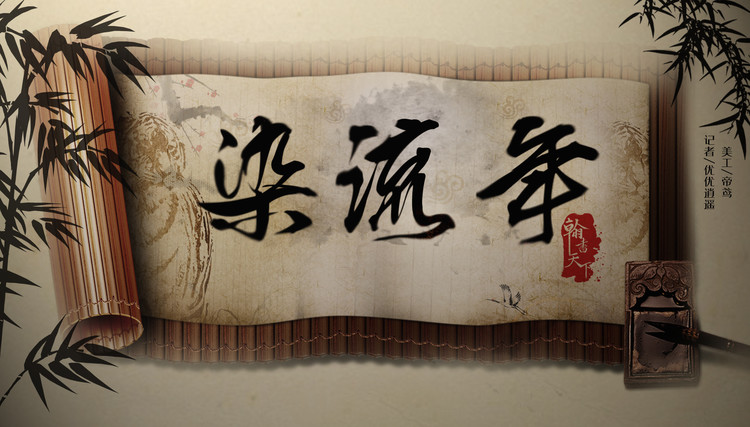 染流年
翰书天下
美工/帝莺
记者/优优逍遥